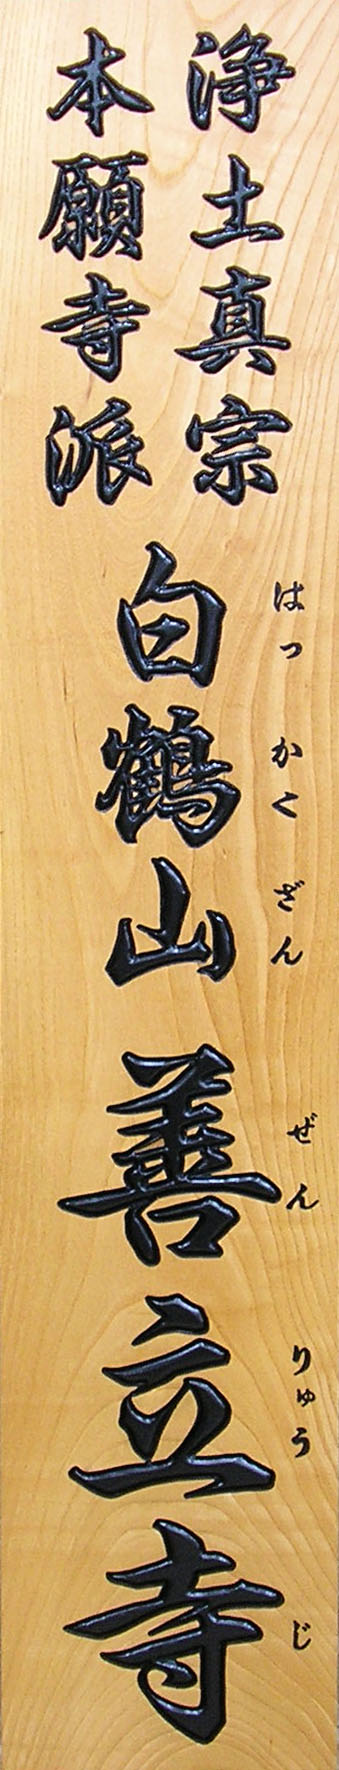 浄土真宗
本願寺派
はっかくざん
白鶴山
ぜんりゅうじ
善立寺